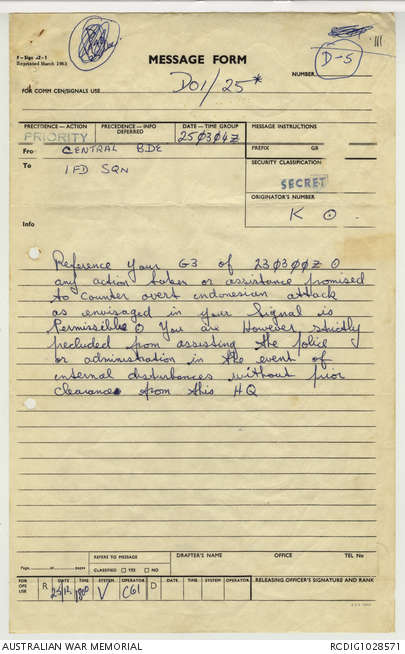 F—Sign 52-1
Reprinted March 1963
MESSAGE FORM
NUMBER
D-5
111
FOR COMM CEN/SIGNALS USE
DO1/25*
PRECEDENCE—ACTION
PRECEDENCE—INFO
DEFERRED
DATE—TIME GROUP
MESSAGE INSTRUCTIONS
PRIORITY
250304Z
PREFIX GR
From CENTRAL BDE
SECURITY CLASSIFICATION
To 1 FD SQN
SECRET
ORIGINATOR'S NUMBER
K O
Info
Reference your G3 of 230300Z O
any action taken or assistance promised
to counter overt indonesian attack
as envisaged in your signal is
Permissible O You are However strictly
precluded from assisting the police
or administration in the event of
internal disturbances without prior
clearance from this HQ
Page of pages
REFERS TO MESSAGE
CLASSIFIED YES NO
DRAFTER'S NAME
OFFICE
TEL No
FOR OPS USE
R DATE TIME SYSTEM OPERATOR D DATE TIME SYSTEM OPERATOR
25/12 1800 V CGI
RELEASING OFFICER'S SIGNATURE AND RANK
AUSTRALIAN WAR MEMORIAL
RCDIG1028571